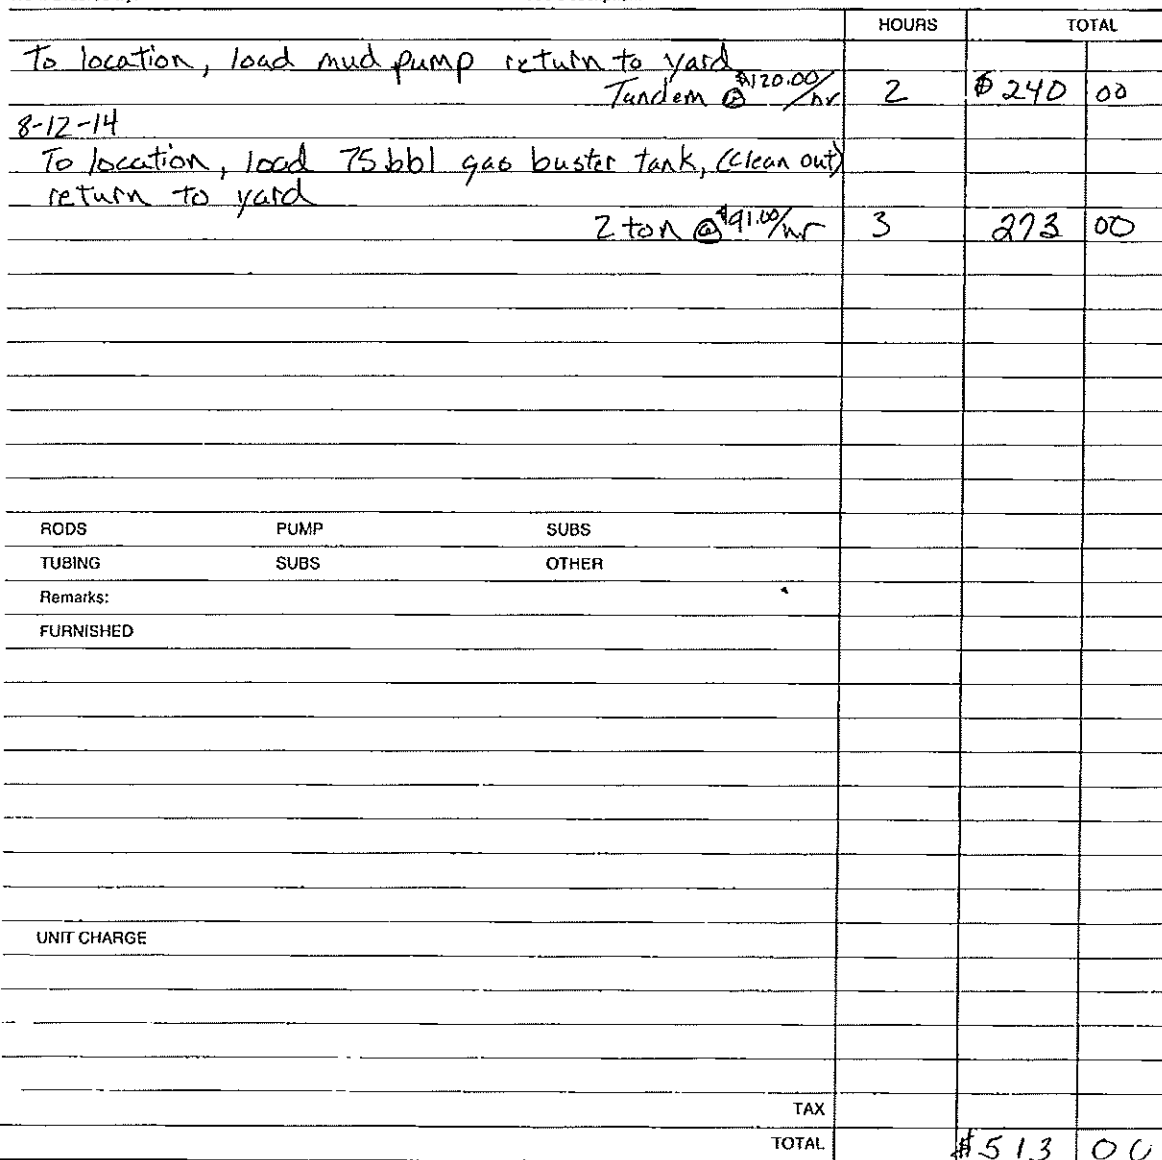 HOURS TOTAL
To location, load mud pump return to yard
Tandem @ $120.00/hr 2 $240 00
8-12-14
To location, load 75 bbl gas buster tank, (clean out)
return to yard
2 ton @ $91.00/hr 3 273 00
RODS PUMP SUBS
TUBING SUBS OTHER
Remarks:
FURNISHED
UNIT CHARGE
TAX
TOTAL $513 00